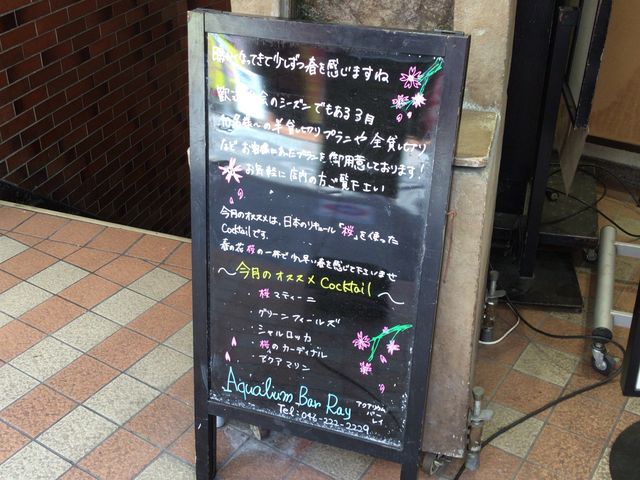 暖かくなってきて少しずつ春を感じますね
歓送迎会のシーズンでもある3月
の半貸し切りプランや全貸し切り
など お客様にあったプランを御用意しております!
お気軽に店内の方ご覧下さい
今月のオススメは、日本のリキュール「桜」を使った
Cocktailです。
春の花 桜の一杯で少し早い春を感じて下さいませ
~今月のオススメ Cocktail~
・桜マティーニ
・グリーンフィールズ
・シャルロッカ
・桜のカーディナル
・アクアマリン
Aqualium Bar Ray
アクアリウム
バー
レイ
Tel:046-222-2229